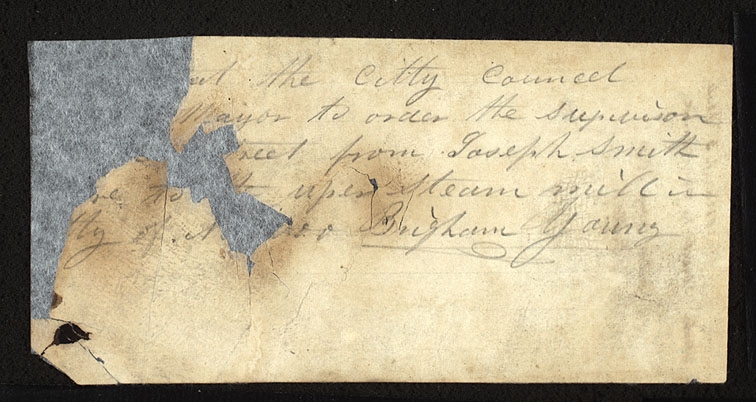 at the Citty Council
Mayor to order the Supervison
reet from Joseph Smith
re to uper steam mill in
ty of oo Brigham Young